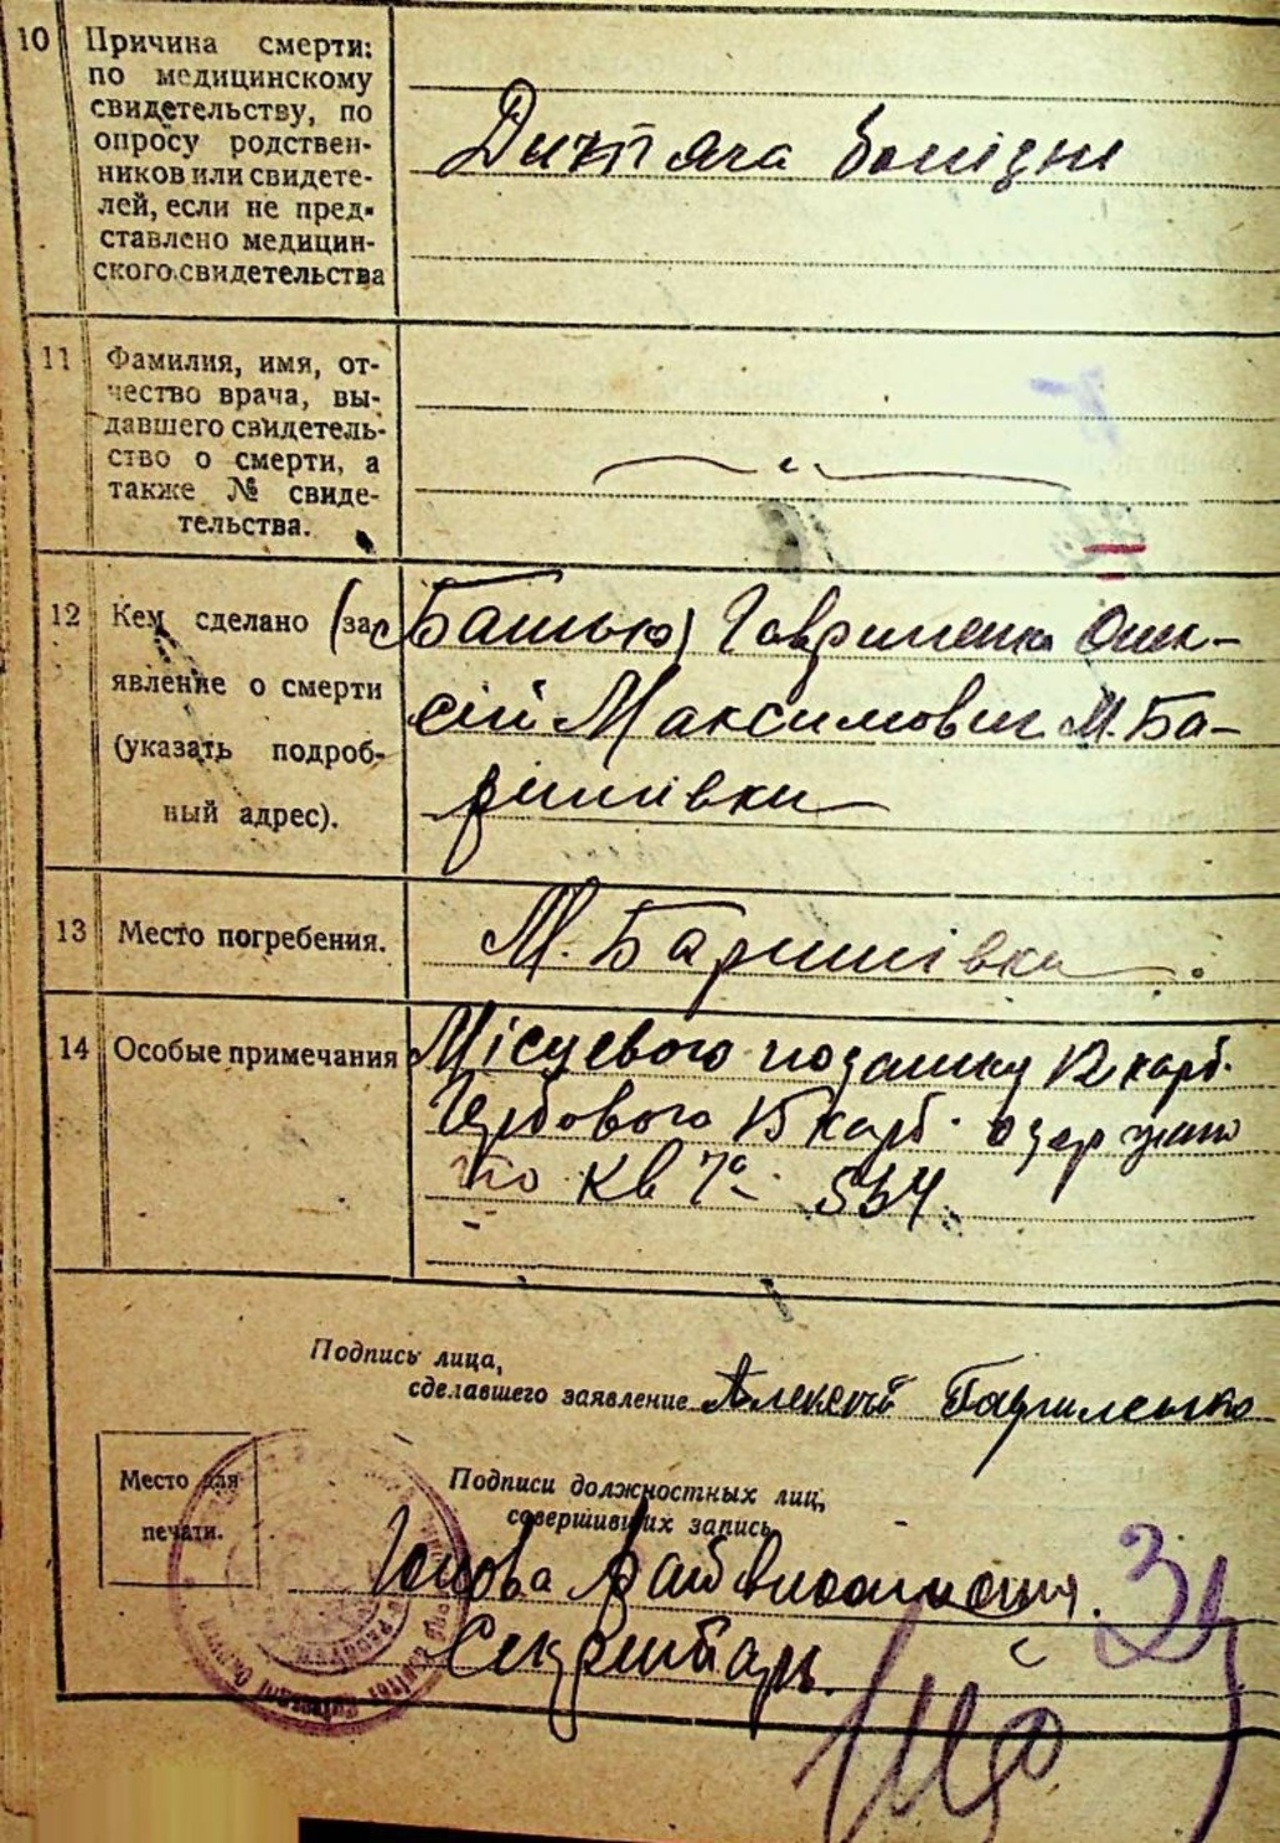 10 Причина смерти:
по медицинскому
свидетельству, по
опросу родствен-
ников или свидете-
лей, если не пред-
ставлено медицин-
ского свидетельства
Дитяча болізнь
11 Фамилия, имя, от-
чество врача, вы-
давшего свидетель-
ство о смерти, а
также № свиде-
тельства.
12 Кем сделано (за-
явление о смерти
(указать подроб-
ный адрес).
Батько) Гавриленко Олек-
сій Максимович М. Ба-
ришівка
13 Место погребения.
М. Баришівка.
14 Особые примечания
Місцевого податку 12 карб.
Гербового 15 карб. одержано
по кв № 534.
Подпись лица,
сделавшего заявление Алексей Гавриленко
Место для
печати.
Подписи должностных лиц,
совершивших запись
Голова
Секретарь.